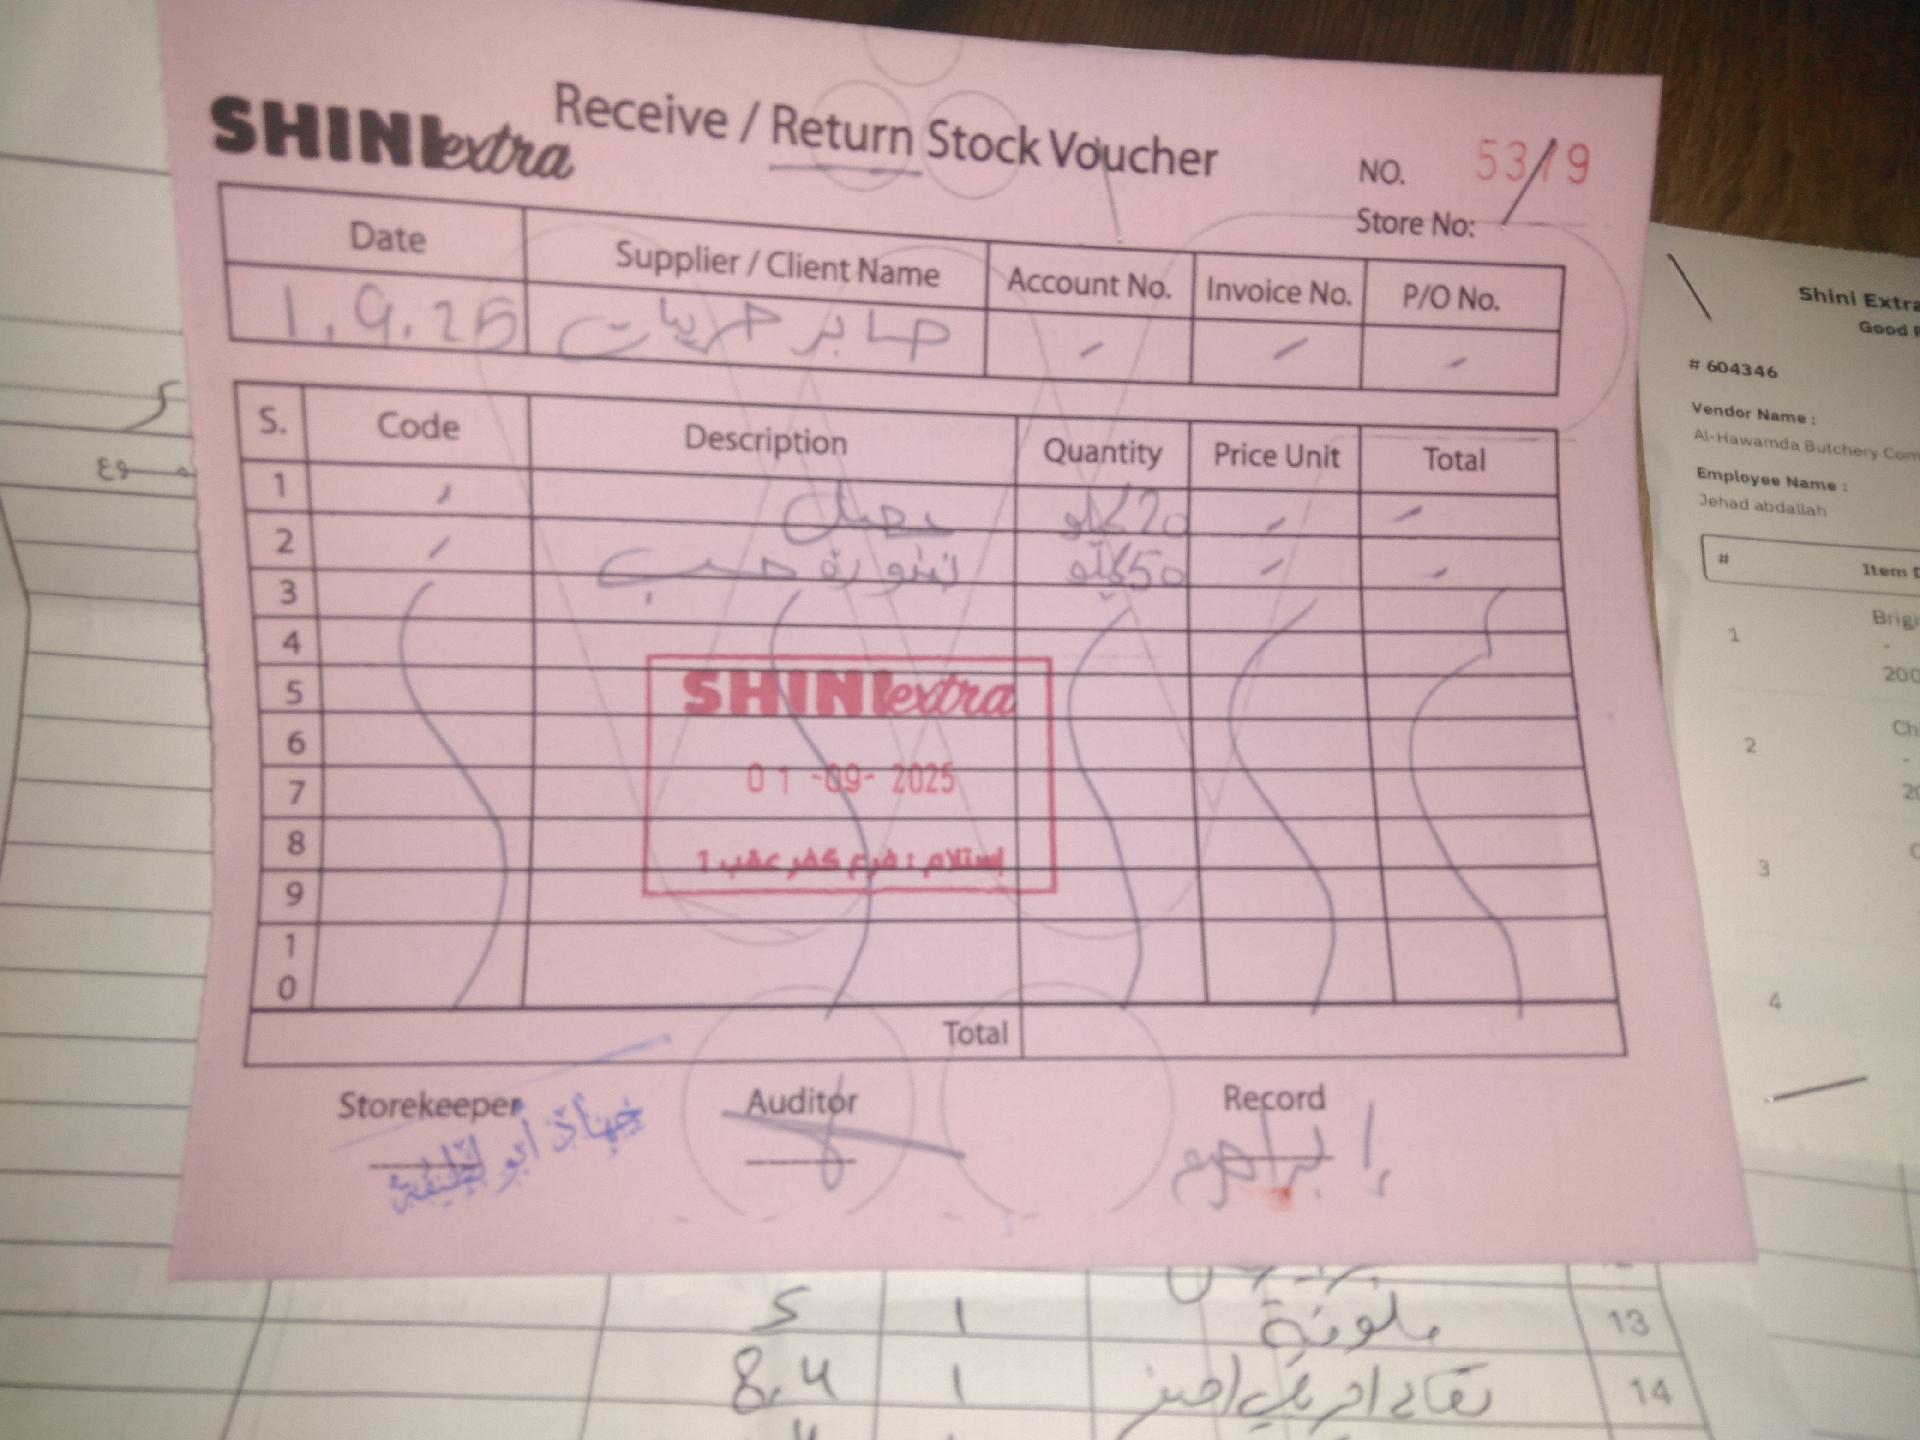 SHINI extra
Receive / Return Stock Voucher
NO. 5319
Store No:
Date Supplier / Client Name Account No. Invoice No. P/O No.
1.9.25 صابر حريات - - -
S. Code Description Quantity Price Unit Total
1 - بصل 20 كيلو - -
2 - بندورة حب 50 كيلو - -
3
4
5
6
7
8
9
10
SHINI extra
01-09-2025
إستلام : فرع كفر عقب 1
Total
Storekeeper Auditor Record
جهاد أبو لطيفة
إبراهيم
Shini Extra
Good
# 604346
Vendor Name :
Al-Hawamda Butchery Com
Employee Name :
Jehad abdallah
# Item D
1 Brigi
-
200
2 Ch
-
20
3
4
13 ملونة 1 5
14 1 8.4